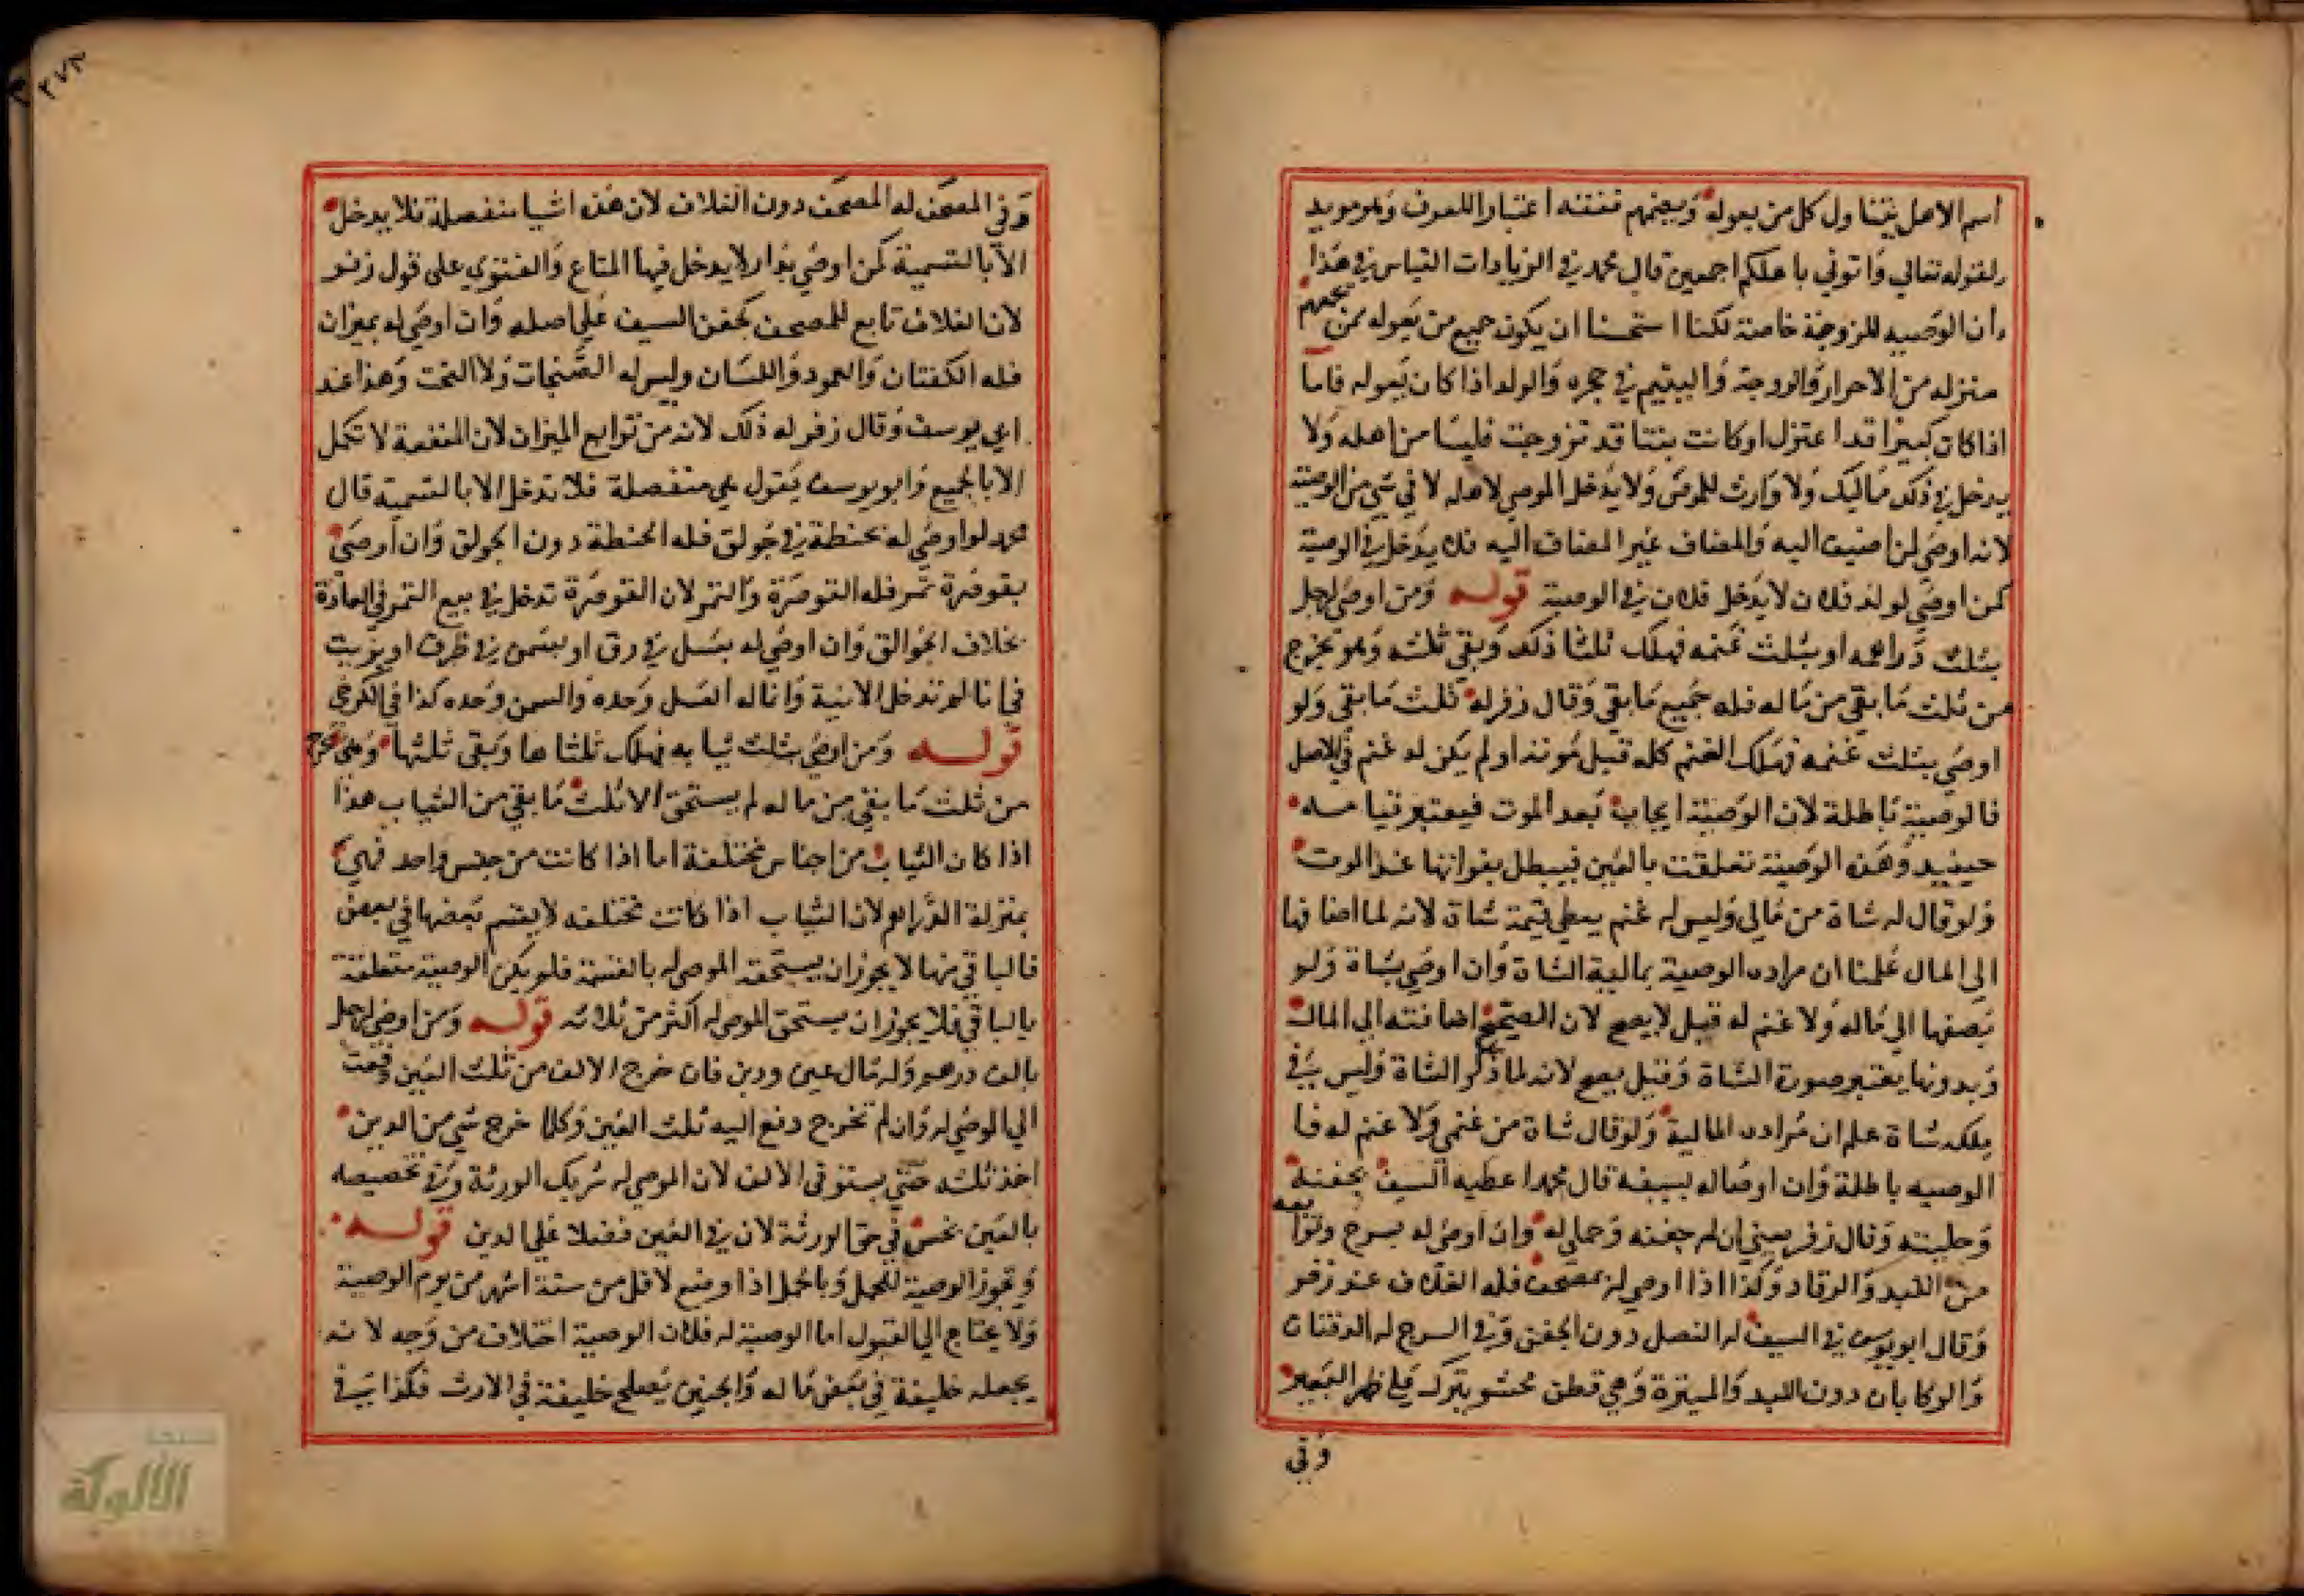 اسم الاهل يتناول كل من يعوله ويضمهم نفقته اعتبارا للعرف وهو مويد
لقوله تعالي واتوني باهلكم اجمعين قال محمد في الزيادات القياس في هذا
ان الوصيه للزوجة خاصة لكنا استحسنا ان يكون جميع من يعوله ممن يجمعهم
منزله من الاحرار والزوجة واليتيم في حجره والولد اذا كان يعوله فاما
اذا كان كبيرا قد اعتزل او كانت بنتا قد تزوجت فليسا من اهله ولا
يدخل في ذلك مماليك ولا وارث للموصي ولا يدخل الموصي لاهله لا في شي من الوصية
لانه اوصي لمن اضيف اليه والمضاف غير المضاف اليه فلا يدخل في الوصية
كمن اوصي لولد فلان لا يدخل فلان في الوصية قوله ومن اوصي لرجل
بثلث دراهمه او بثلث غنمه فهلك ثلثا ذلك وبقي ثلثه وهو يخرج
من ثلث ما بقي من ماله فله جميع ما بقي وقال زفر له ثلث ما بقي ولو
اوصي بثلث غنمه فهلك الغنم كله قبل موته او لم يكن له غنم في الاصل
فالوصية باطلة لان الوصية ايجاب بعد الموت فيعتبر قيامه
حينيذ وهذه الوصية تعلقت بالعين فيبطل بفواتها عند الموت
ولو قال له شاة من مالي وليس له غنم يعطي قيمة شاة لانه لما اضافها
الي المال علمنا ان مراده الوصية بمالية الشاة وان اوصي بشاة ولو
يضفها الي ماله ولا غنم له قيل لا يصح لان المصحح اضافته الي المال
وبدونها يعتبر صورة الشاة وقيل يصح لانه لما ذكر الشاة وليس في
ملكه شاة علم ان مراده المالية ولو قال شاة من غنمي ولا غنم له فا
الوصيه باطلة وان اوصا له بسيفه قال محمد اعطيه السيف بجفنه
وحليته وقال زفر يعني ان له جفنه وحمايله وان اوصي له بسرج وتوابعه
من اللبد والرفادة وكذا اذا اوصي له بمصحف فله الغلاف عند زفر
وقال ابو يوسف في السيف له النصل دون الجفن وفي السرج له الدفتان
والركابان دون اللبد والميترة وهي قطن محشو يترك علي ظهر البعير
وفي
٢٧٣
وفي المصحف له المصحف دون الغلاف لان هذه اشيا منفصلة فلا يدخل
الا بالتسمية كمن اوصي بدار لا يدخل فيها المتاع والفتوي على قول زفر
لان الغلاف تابع للمصحف كجفن السيف علي اصله وان اوصي له بميزان
فله الكفتان والعمود واللسان وليس له الصنجات ولا التخت وهذا عند
ابي يوسف وقال زفر له ذلك لانه من توابع الميزان لان المنفعة لا تكمل
الا بالجميع وابو يوسف يقول هي منفصلة فلا تدخل الا بالتسمية قال
محمد لو اوصي له بحنطة في جولق فله الحنطة دون الجولق وان اوصي
بقوصرة تمر فله القوصرة والتمر لان القوصرة تدخل في بيع التمر في العادة
بخلاف الجوالق وان اوصي له بعسل في زق او بسمن في ظرف او بزيت
في انا لم تدخل الانية وانما له العسل وحده والسمن وحده كذا في الكرخي
قوله ومن اوصي بثلث ثيابه فهلك ثلثاها وبقي ثلثها وهي تخرج
من ثلث ما بقي من ماله لم يستحق الا ثلث ما بقي من الثياب هذا
اذا كان الثياب من اجناس مختلفة اما اذا كانت من جنس واحد فهي
بمنزلة الدراهم لان الثياب اذا كانت مختلفه لا يقسم بعضها في بعض
فالباقي منها لا يجوز ان يستحقه الموصي له بالقسمة فلم يكن الوصية متعلقة
بالباقي فلا يجوز ان يستحق الموصي له اكثر من ثلاثه قوله ومن اوصي لرجل
بالف درهم وله مال عين ودين فان خرج الالف من ثلث العين دفعت
الي الموصي له وان لم تخرج دفع اليه ثلث العين وكلما خرج شي من الدين
اخذ ثلثه حتي يستوفي الالف لان الموصي له شريك الورثة وفي تخصيصه
بالعين بخس في حق الورثة لان في العين فضلا علي الدين قوله
وتجوز الوصية للحمل وبالحمل اذا وضع لاقل من ستة اشهر من يوم الوصية
ولا يحتاج الي القبول اما الوصية له فلان الوصية اختلاف من وجه لانه
يجعله خليفة في بعض ماله والجنين يصلح خليفة في الارث فكذا في